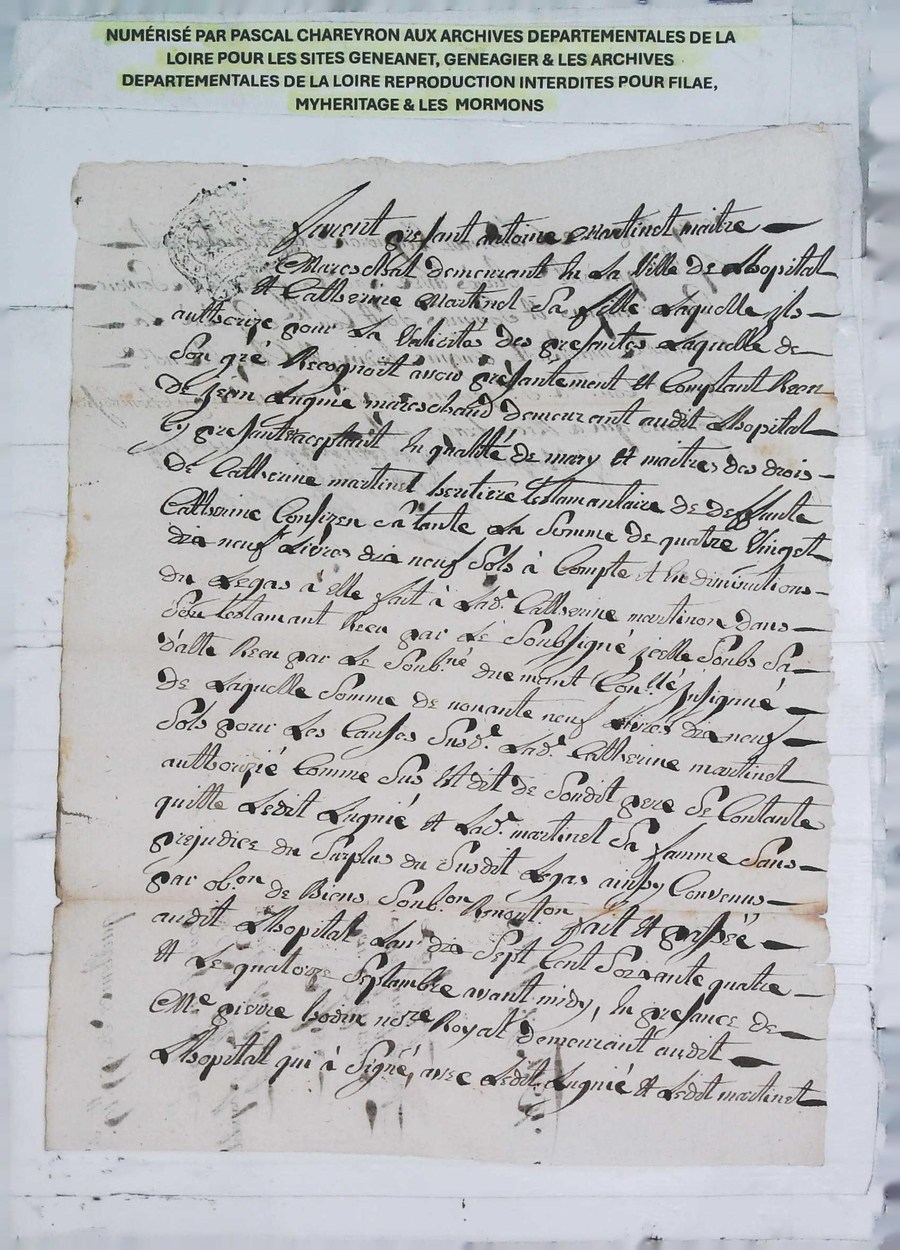 NUMÉRISÉ PAR PASCAL CHAREYRON AUX ARCHIVES DEPARTEMENTALES DE LA
LOIRE POUR LES SITES GENEANET, GENEAGIER & LES ARCHIVES
DEPARTEMENTALES DE LA LOIRE REPRODUCTION INTERDITES POUR FILAE,
MYHERITAGE & LES MORMONS
furent presant antoine martinet maitre
Mareschal demeurant En La Ville de Lhopital
Et Catherine Martinet Sa fille Laquelle ils
authorize pour La Validité des presantes Laquelle de
Son gré Recognoit avoir presantement Et Comptant Receu
De Jean Lugnié marechand demeurant audit Lhopital
Ey presant acceptant En qualité de mary Et maitre des drois
De Catherine martinet heritiere testamantaire de deffunte
Catherine sa tante La Somme de quatre Vinget
dix neuf Livres dix neuf Sols à Compte Et En diminutions
du Legas à Elle fait à Lad.e Catherine dans
Son testamant Receu par Le Soubsigné icelle Soubs Sa
Datte Receu par Le Soub.né duemant Con.llé Insignué
De Laquelle Somme de nonante neuf Livres dix neuf
Sols pour Les Causes Susd.e Lad.e Catherine martinet
authorizié Comme Sus Est dit de Soudit pere Se Contante
quitte Ledit Lugnié Et Lad.e martinet Sa famme Sans
prejudice du Surplus du Susdit Legas ainsy Convenus
par ob.on de Biens Soub.on Renon.ton fait Et passéé
audit Lhopital Lan dix Sept Cent Soixante quatre
Et Le quatorze Septambre avant midy, En presance de
Me pierre no.re Royal demeurant audit
Lhopital qui à Signé, avec Ledit Lugnié Et Ledit martinet